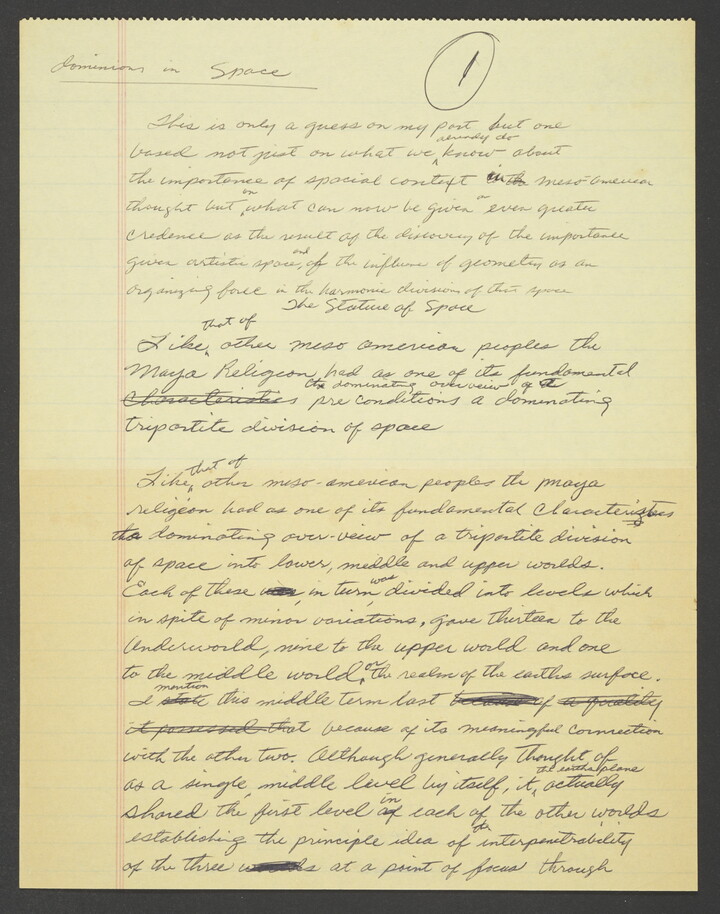 Dominions in Space
1
This is only a guess on my part but one
based not just on what we already do know about
the importance of spacial context in meso-american
thought but in what can now be given even greater
credence as the result of the discovery of the importance
given artistic space, and of the influence of geometry as an
organizing force in the harmonic division of that space
The Stature of Space
Like that of other meso american peoples the
Maya Religion had as one of its fundamental
Characteristics the dominating over view of a
pre conditions a dominating
tripartite division of space
Like that of other meso-american peoples the maya
religion had as one of its fundamental Characteristics
the dominating over-view of a tripartite division
of space into lower, middle and upper worlds.
Each of these in turn was divided into levels which
in spite of minor variations, gave thirteen to the
Underworld, nine to the upper world and one
to the middle world, or the realm of the earths surface.
I state mention this middle term last because of a quality
it possessed that because of its meaningful connection
with the other two. Although generally thought of
as a single, middle level by itself, it, the earths plane actually
shared the first level in of each of the other worlds
establishing the principle idea of the interpenetrability
of the three worlds at a point of focus through